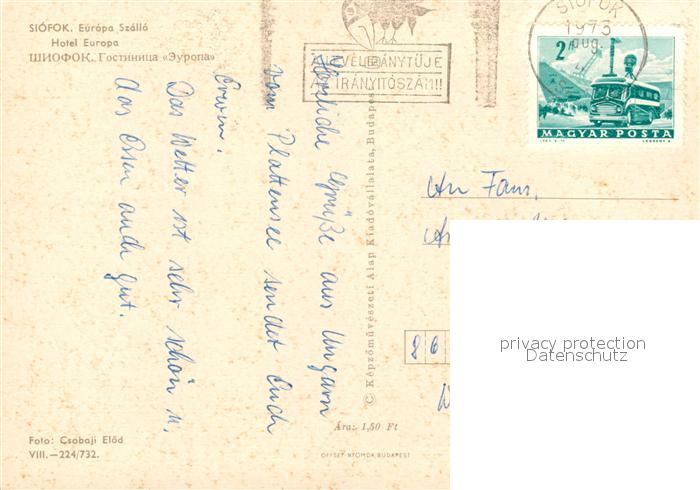 SIÓFOK. Európa Szálló
Hotel Europa
ШИОФОК. Гостиница «Эуропа»
A LEVÉL IRÁNYTŰJE
AZ IRÁNYÍTÓSZÁM!!
SIÓFOK
1973
aug.
2 Ft
MAGYAR POSTA
LÉGRÁDY S.
Herzliche Grüße aus Ungarn
vom Plattensee sendet Euch
Erwin.
Das Wetter ist sehr schön u.
das Essen auch gut.
© Képzőművészeti Alap Kiadóvállalata, Budapest
An Fam.
26
privacy protection
Datenschutz
Ára: 1,50 Ft
Foto: Csobaji Előd
VIII.—224/732.
OFFSET-NYOMDA, BUDAPEST